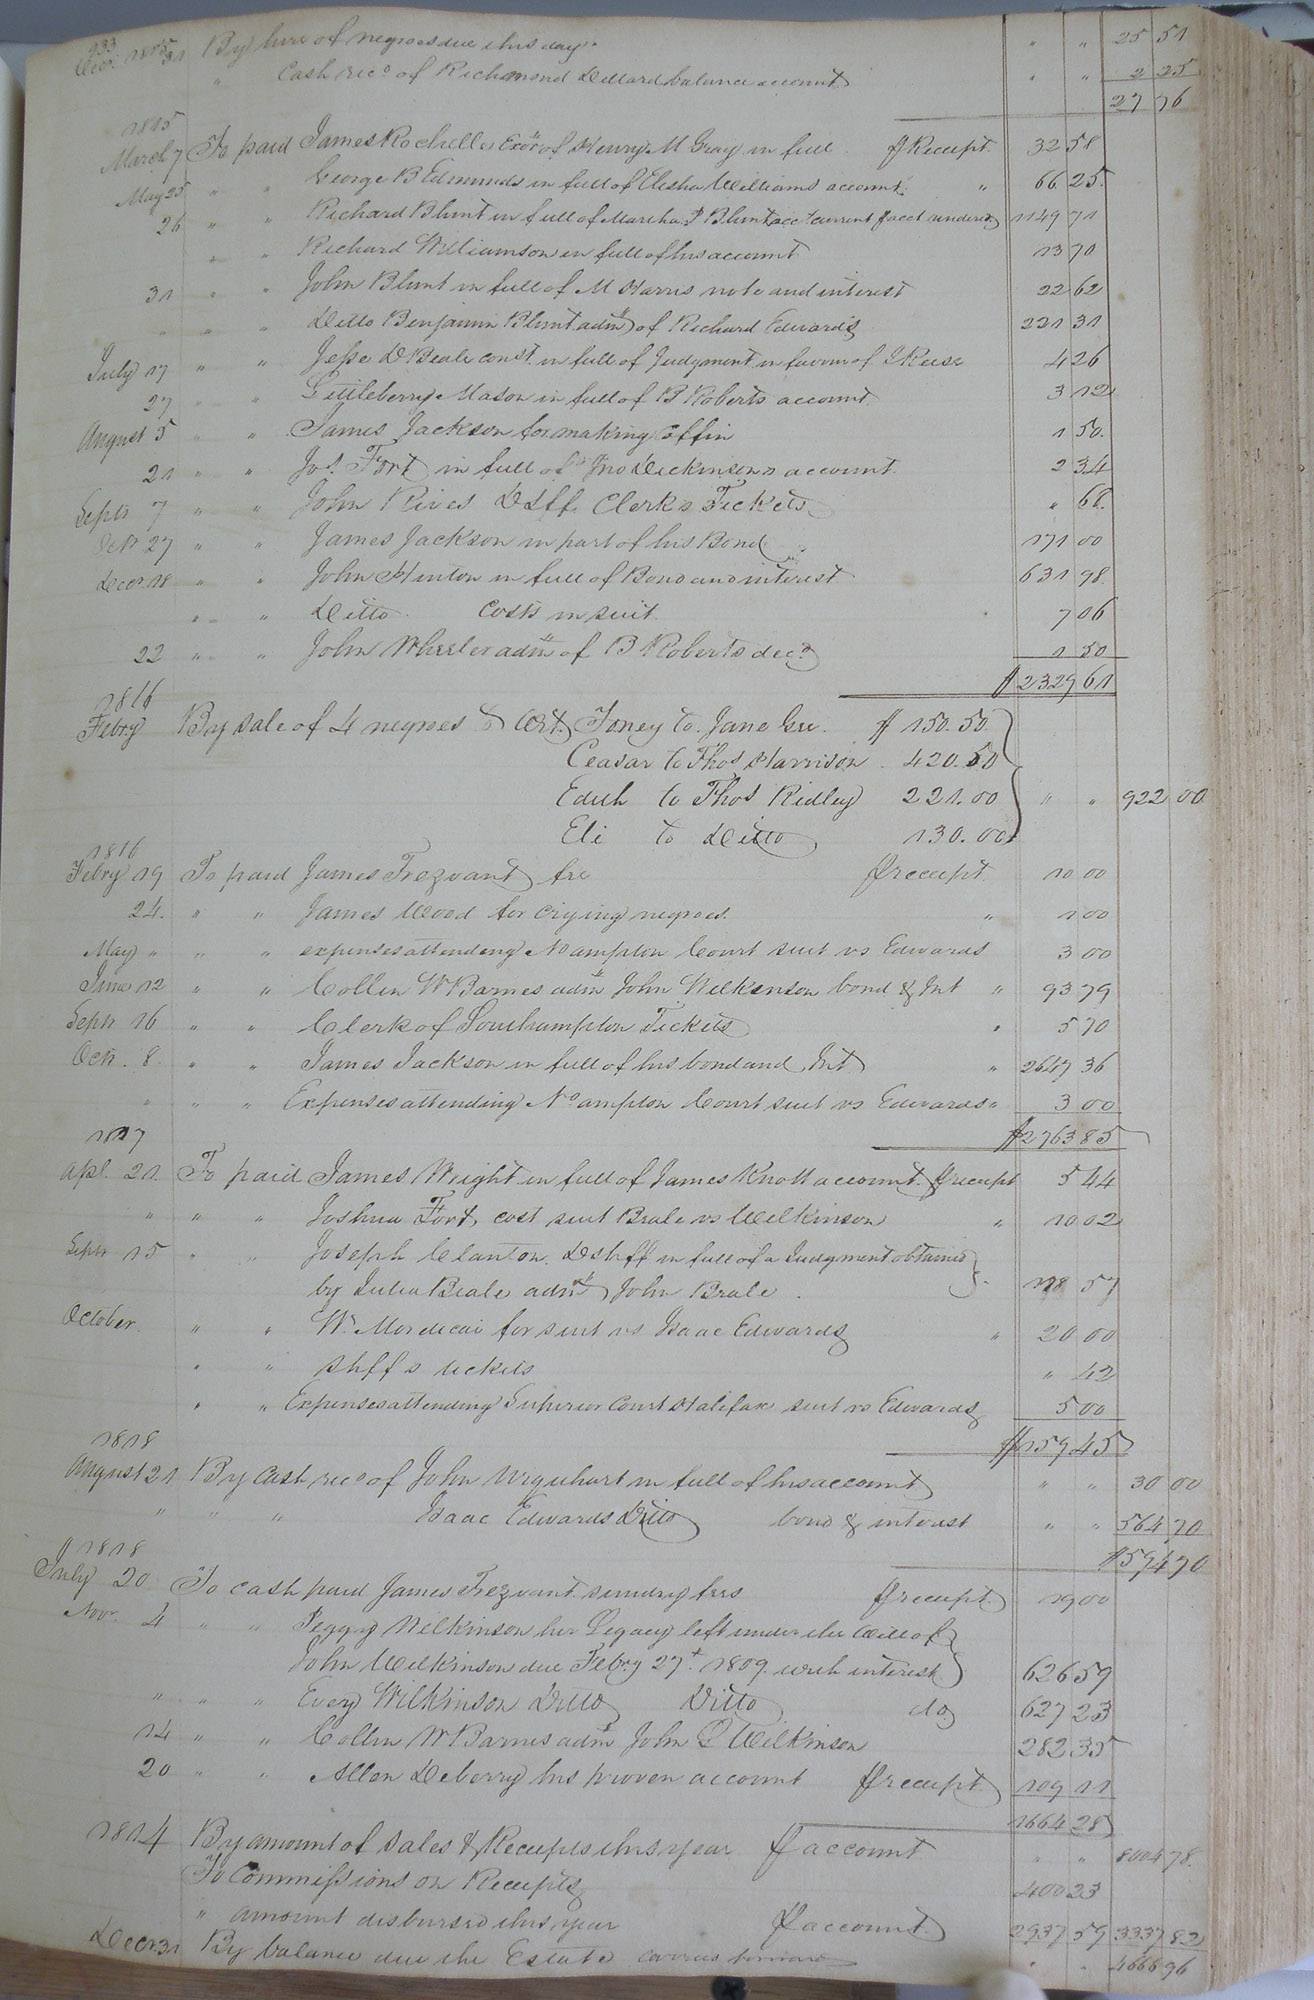 233
Decr. 1815 31 By hire of negroes due this day " " 25 51
" Cash recd of Richmond Dillard balance account " " 2 25
27 76
1815
March 7 To paid James Rochelle Exor of Henry M Gray in full Receipt 32 58
May 25 " " George B Edmunds in full of Elisha Williams account " 66 25
26 " " Richard Blunt in full of Martha P Blunt acct current acct rendered 1149 71
" " Richard Williamson in full of his account 13 70
31 " " John Blunt in full of M Harris note and interest 22 62
" " Ditto Benjamin Blunt adm of Richard Edwards 221 31
July 17 " " Jesse D Beale const. in full of Judgment in favour of Reese 4 26
27 " " Littleberry Mason in full of B Roberts account 3 12
August 5 " " James Jackson for making Coffin 1 50
21 " " Jos. Fort in full of Jno Dickinson's account 2 34
Septr 7 " " John Rives D Sff. Clerks Tickets " 68
Octr 27 " " James Jackson in part of his Bond 171 00
Decr 18 " " John Hinton in full of Bond and interest 631 98
" " Ditto Costs in suit 7 06
22 " " John Wheeler adm of B Roberts decd 1 50
$2329 61
1816
Febry By sale of 4 negroes to wit, Toney to Jane $ 150.50
Ceasar to Thos Harrison 420.50
Edith to Thos Ridley 221.00 " " 922 00
Eli to Ditto 130.00
1816
Febry 19 To paid James Trezvant fee receipt 10 00
24. " " James Wood for crying negroes " 1 00
May " " " expenses attending No ampton Court suit vs Edwards 3 00
June 12 " " Collin W Barnes adm John Wilkinson bond & Int " 93 79
Septr 16 " " Clerk of Southampton Tickets " 5 70
Octr. 8 " " James Jackson in full of his bond and Int " 2647 36
" " " Expenses attending No ampton Court suit vs Edwards " 3 00
$2763 85
1817
Apl. 21. To paid James Wright in full of James Knott account receipt 5 44
" " " Joshua Fort, cost suit Beale vs Wilkinson " 10 02
Septr 15 " " Joseph Clanton D Shff in full of a Judgment obtained
by Julia Beale adm John Beale 118 57
October " " W. Mordecai for suit vs Isaac Edwards " 20 00
" " Shff's tickets " 42
" " Expenses attending Superior Court Halifax suit vs Edwards 5 00
$159 45
1818
August 21 By Cash recd of John Urquhart in full of his account " " 30 00
" " " Isaac Edwards Ditto bond & interest " " 564 70
$594 70
1818
July 20 To cash paid James Trezvant sundry fees receipt 19 00
Novr. 4 " " Peggy Wilkinson her Legacy left under the will of
John Wilkinson due Febry 27th 1809 with interest 626 59
" " " Every Wilkinson Ditto Ditto do 627 23
14 " " Collin W Barnes adm John Wilkinson 282 35
20 " " Allen Deberry his proven account receipt 109 11
1664 28
1814 By amount of Sales & Receipts this year account " " 8004 78
To Commissions on Receipts 400 23
" amount disbursed this year account 2937 59 3337 82
Decr 31 By balance due the Estate carried forward " " 4666 96